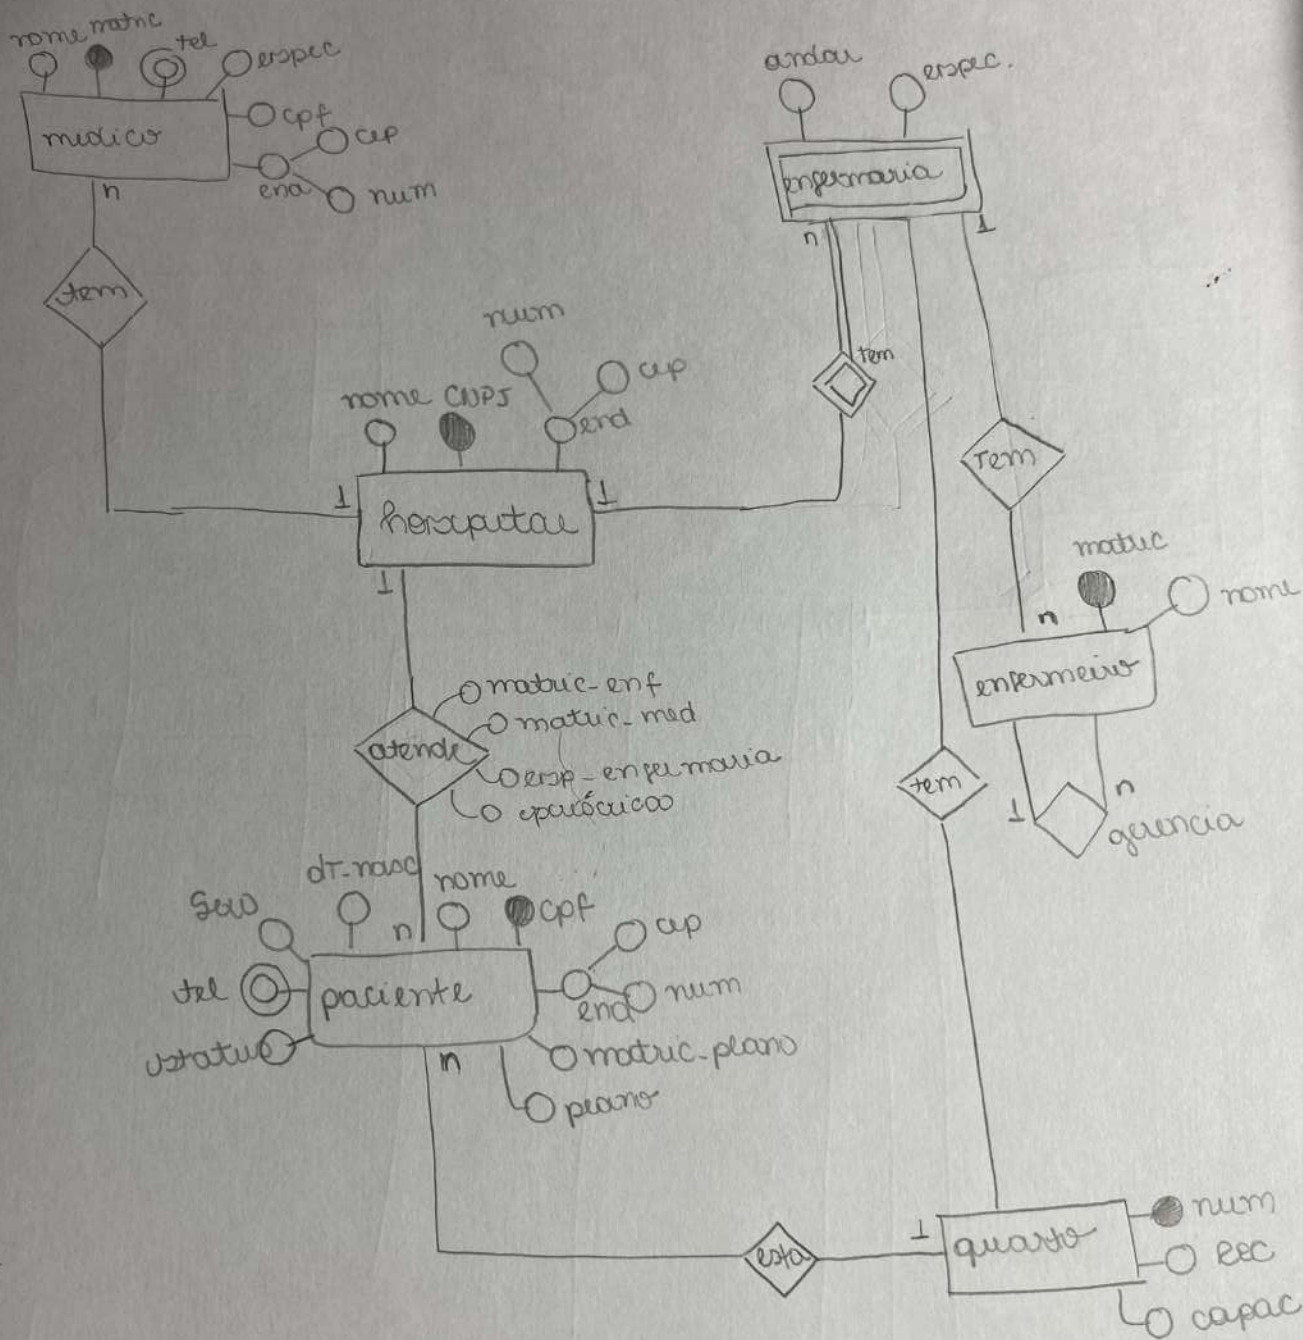 nome matric
tel
espec
medico
cpf
cep
end
num
n
tem
andar
espec.
enfermaria
n
1
tem
num
cep
nome CNPJ
end
1
hospital
1
1
tem
matric
nome
n
enfermeiro
1
n
gerencia
matric-enf
matric-med
atende
esp-enfermaria
tem
dt-nasc
nome
cpf
sexo
n
cep
tel
paciente
end
num
status
n
matric-plano
plano
esta
1
quarto
num
loc
capac